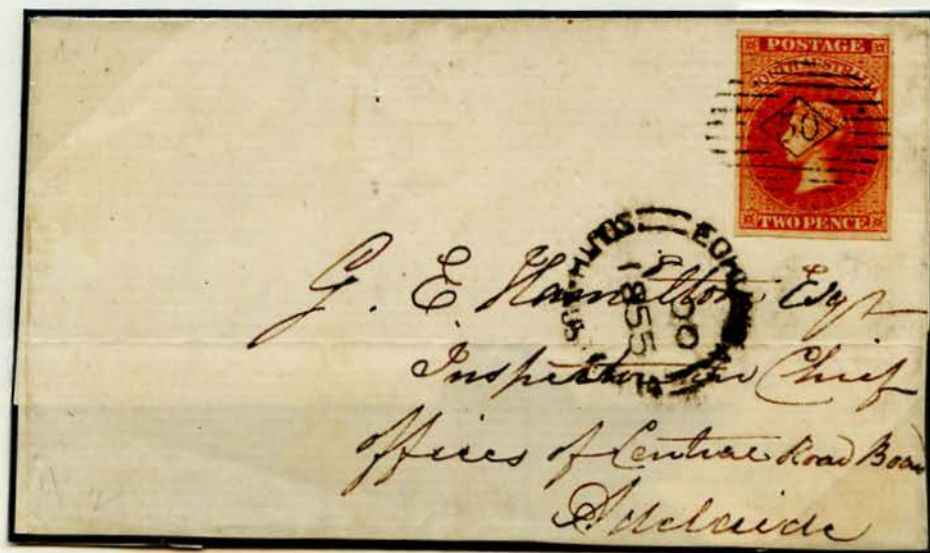 POSTAGE
SOUTH AUSTRALIA
50
TWO PENCE
SOUTH
1855
G. E. Hamilton Esqr
Inspector in Chief
Offices of Central Road Board
Adelaide